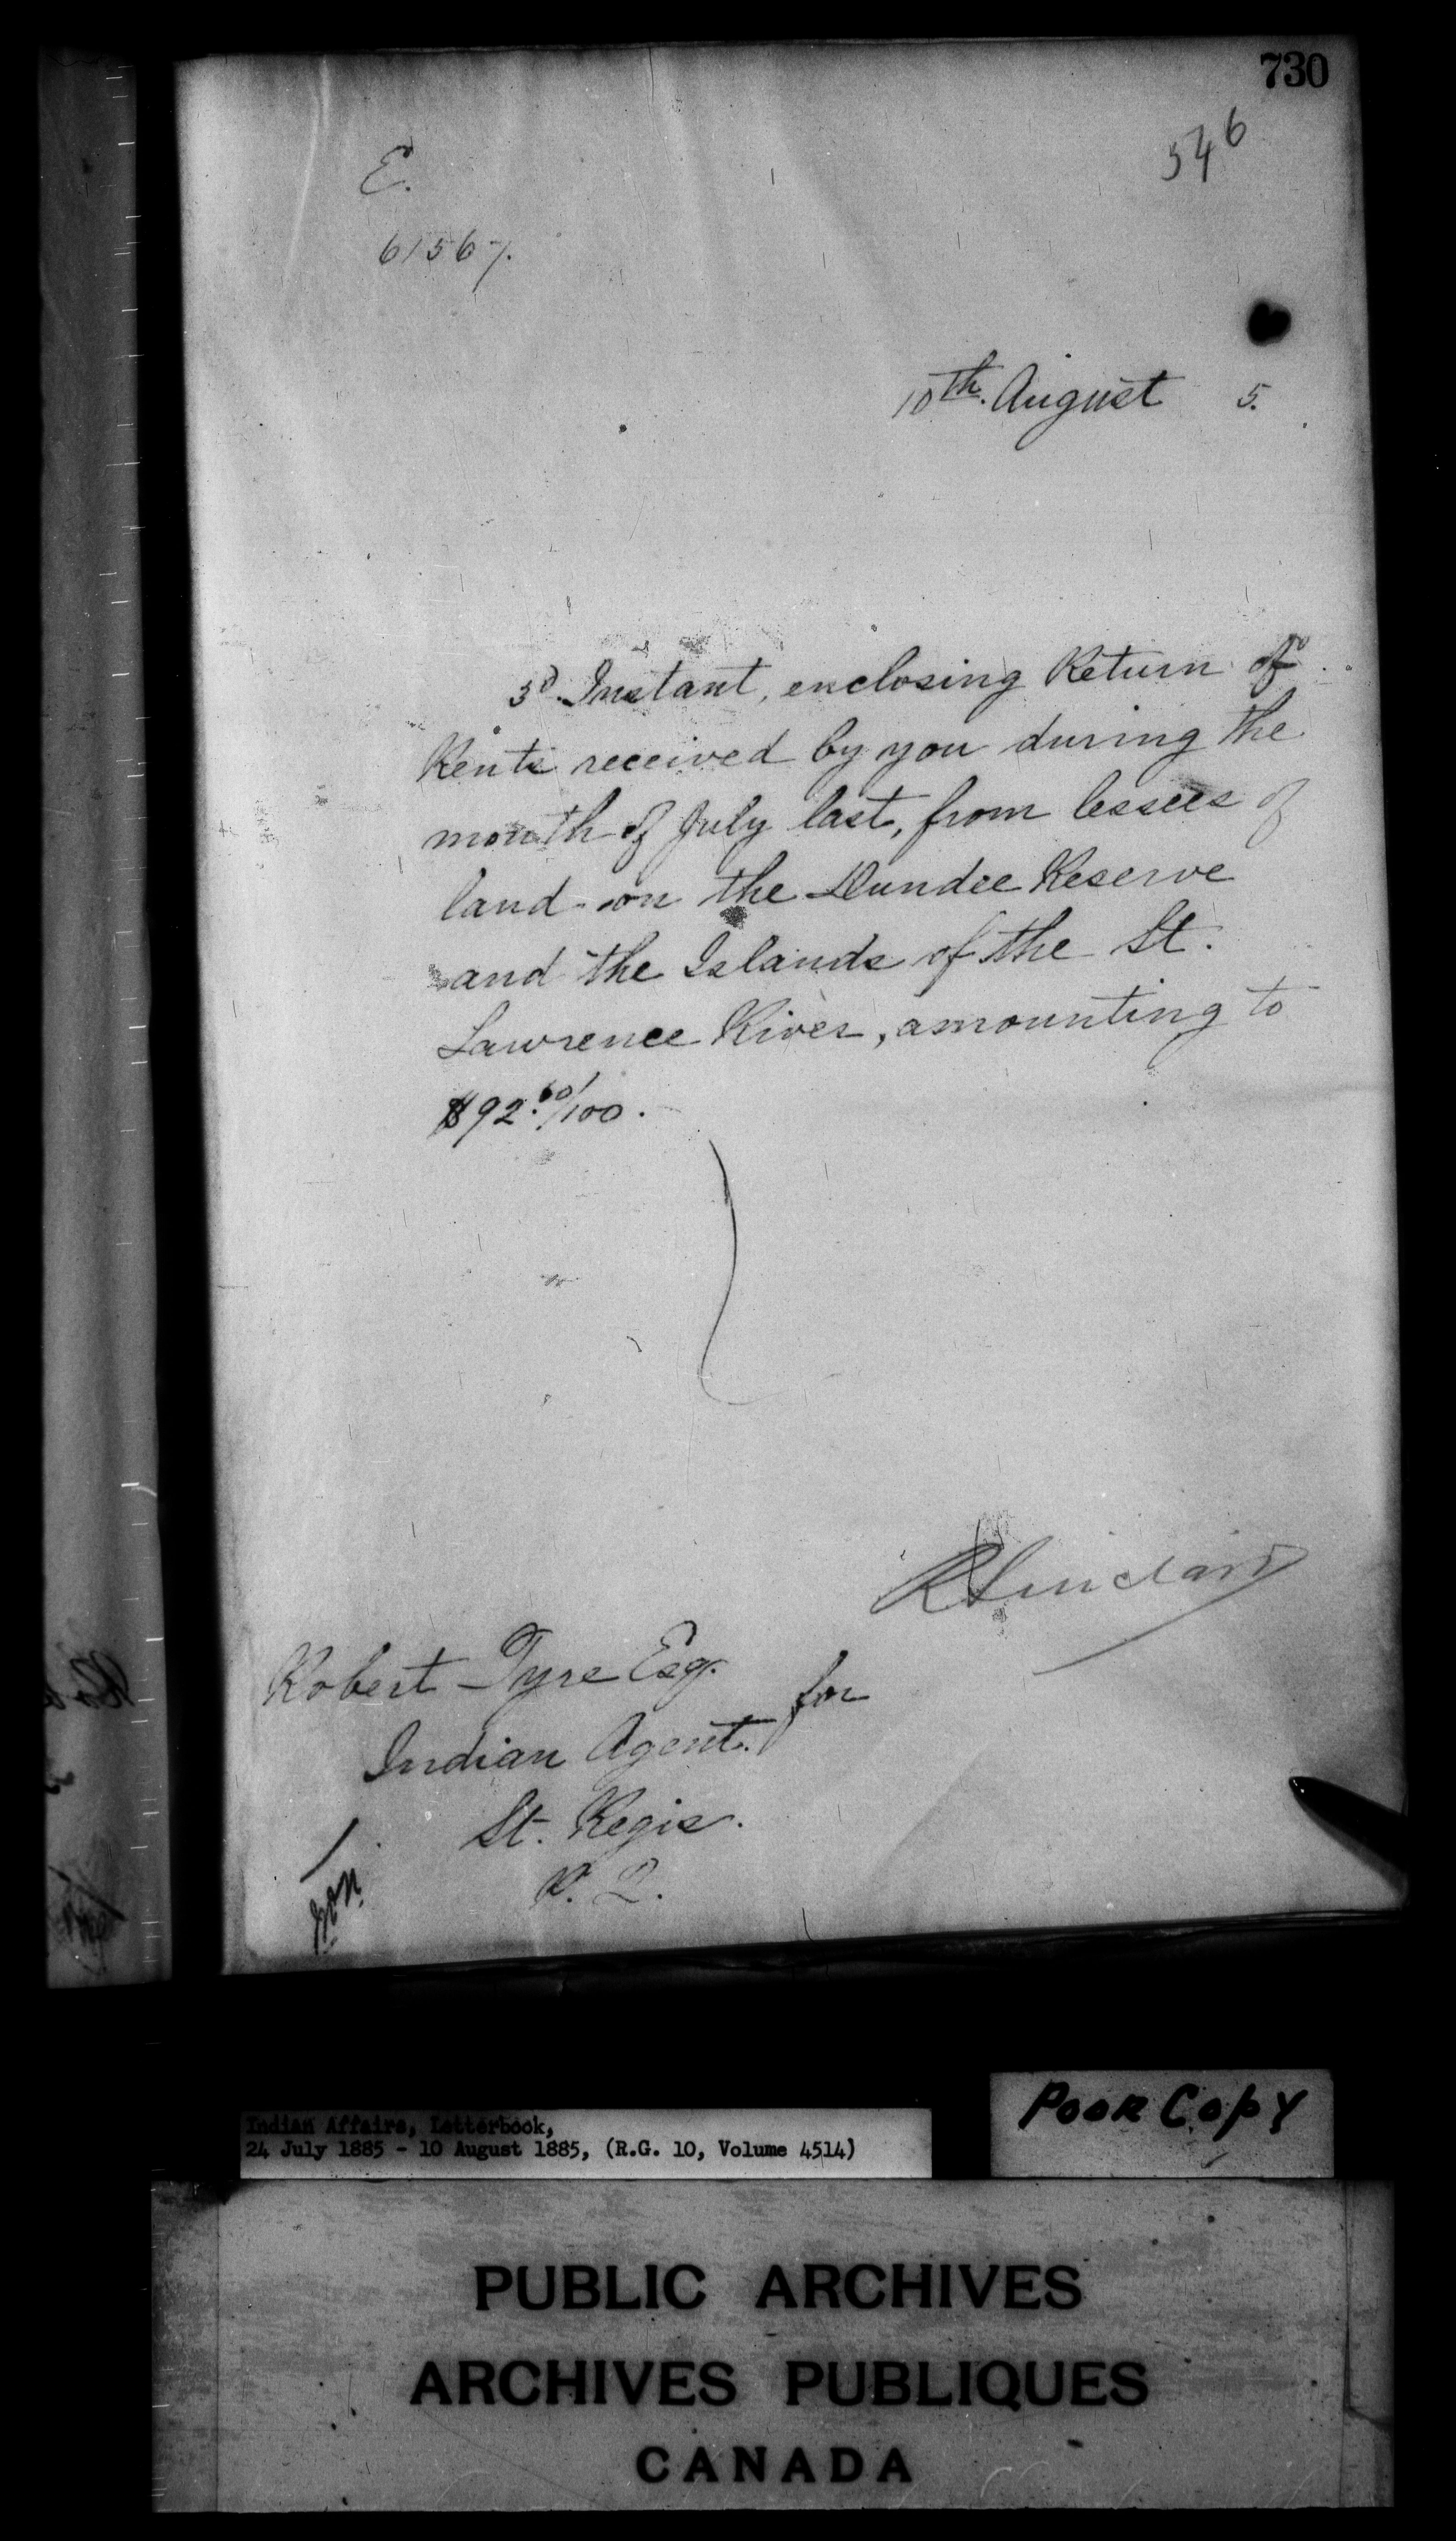 730
546
E.
61567.
10th. August 5.
3d Instant, enclosing Return of
Rents received by you during the
month of July last, from lessees of
land on the Dundee Reserve
and the Islands of the St.
Lawrence River, amounting to
$92.60/100.
R Sinclair
Robert Tyre Esq.
for
Indian Agent.
St. Regis.
P. Q.
Indian Affairs, Letterbook,
24 July 1885 - 10 August 1885, (R.G. 10, Volume 4514)
POOR COPY
PUBLIC ARCHIVES
ARCHIVES PUBLIQUES
CANADA